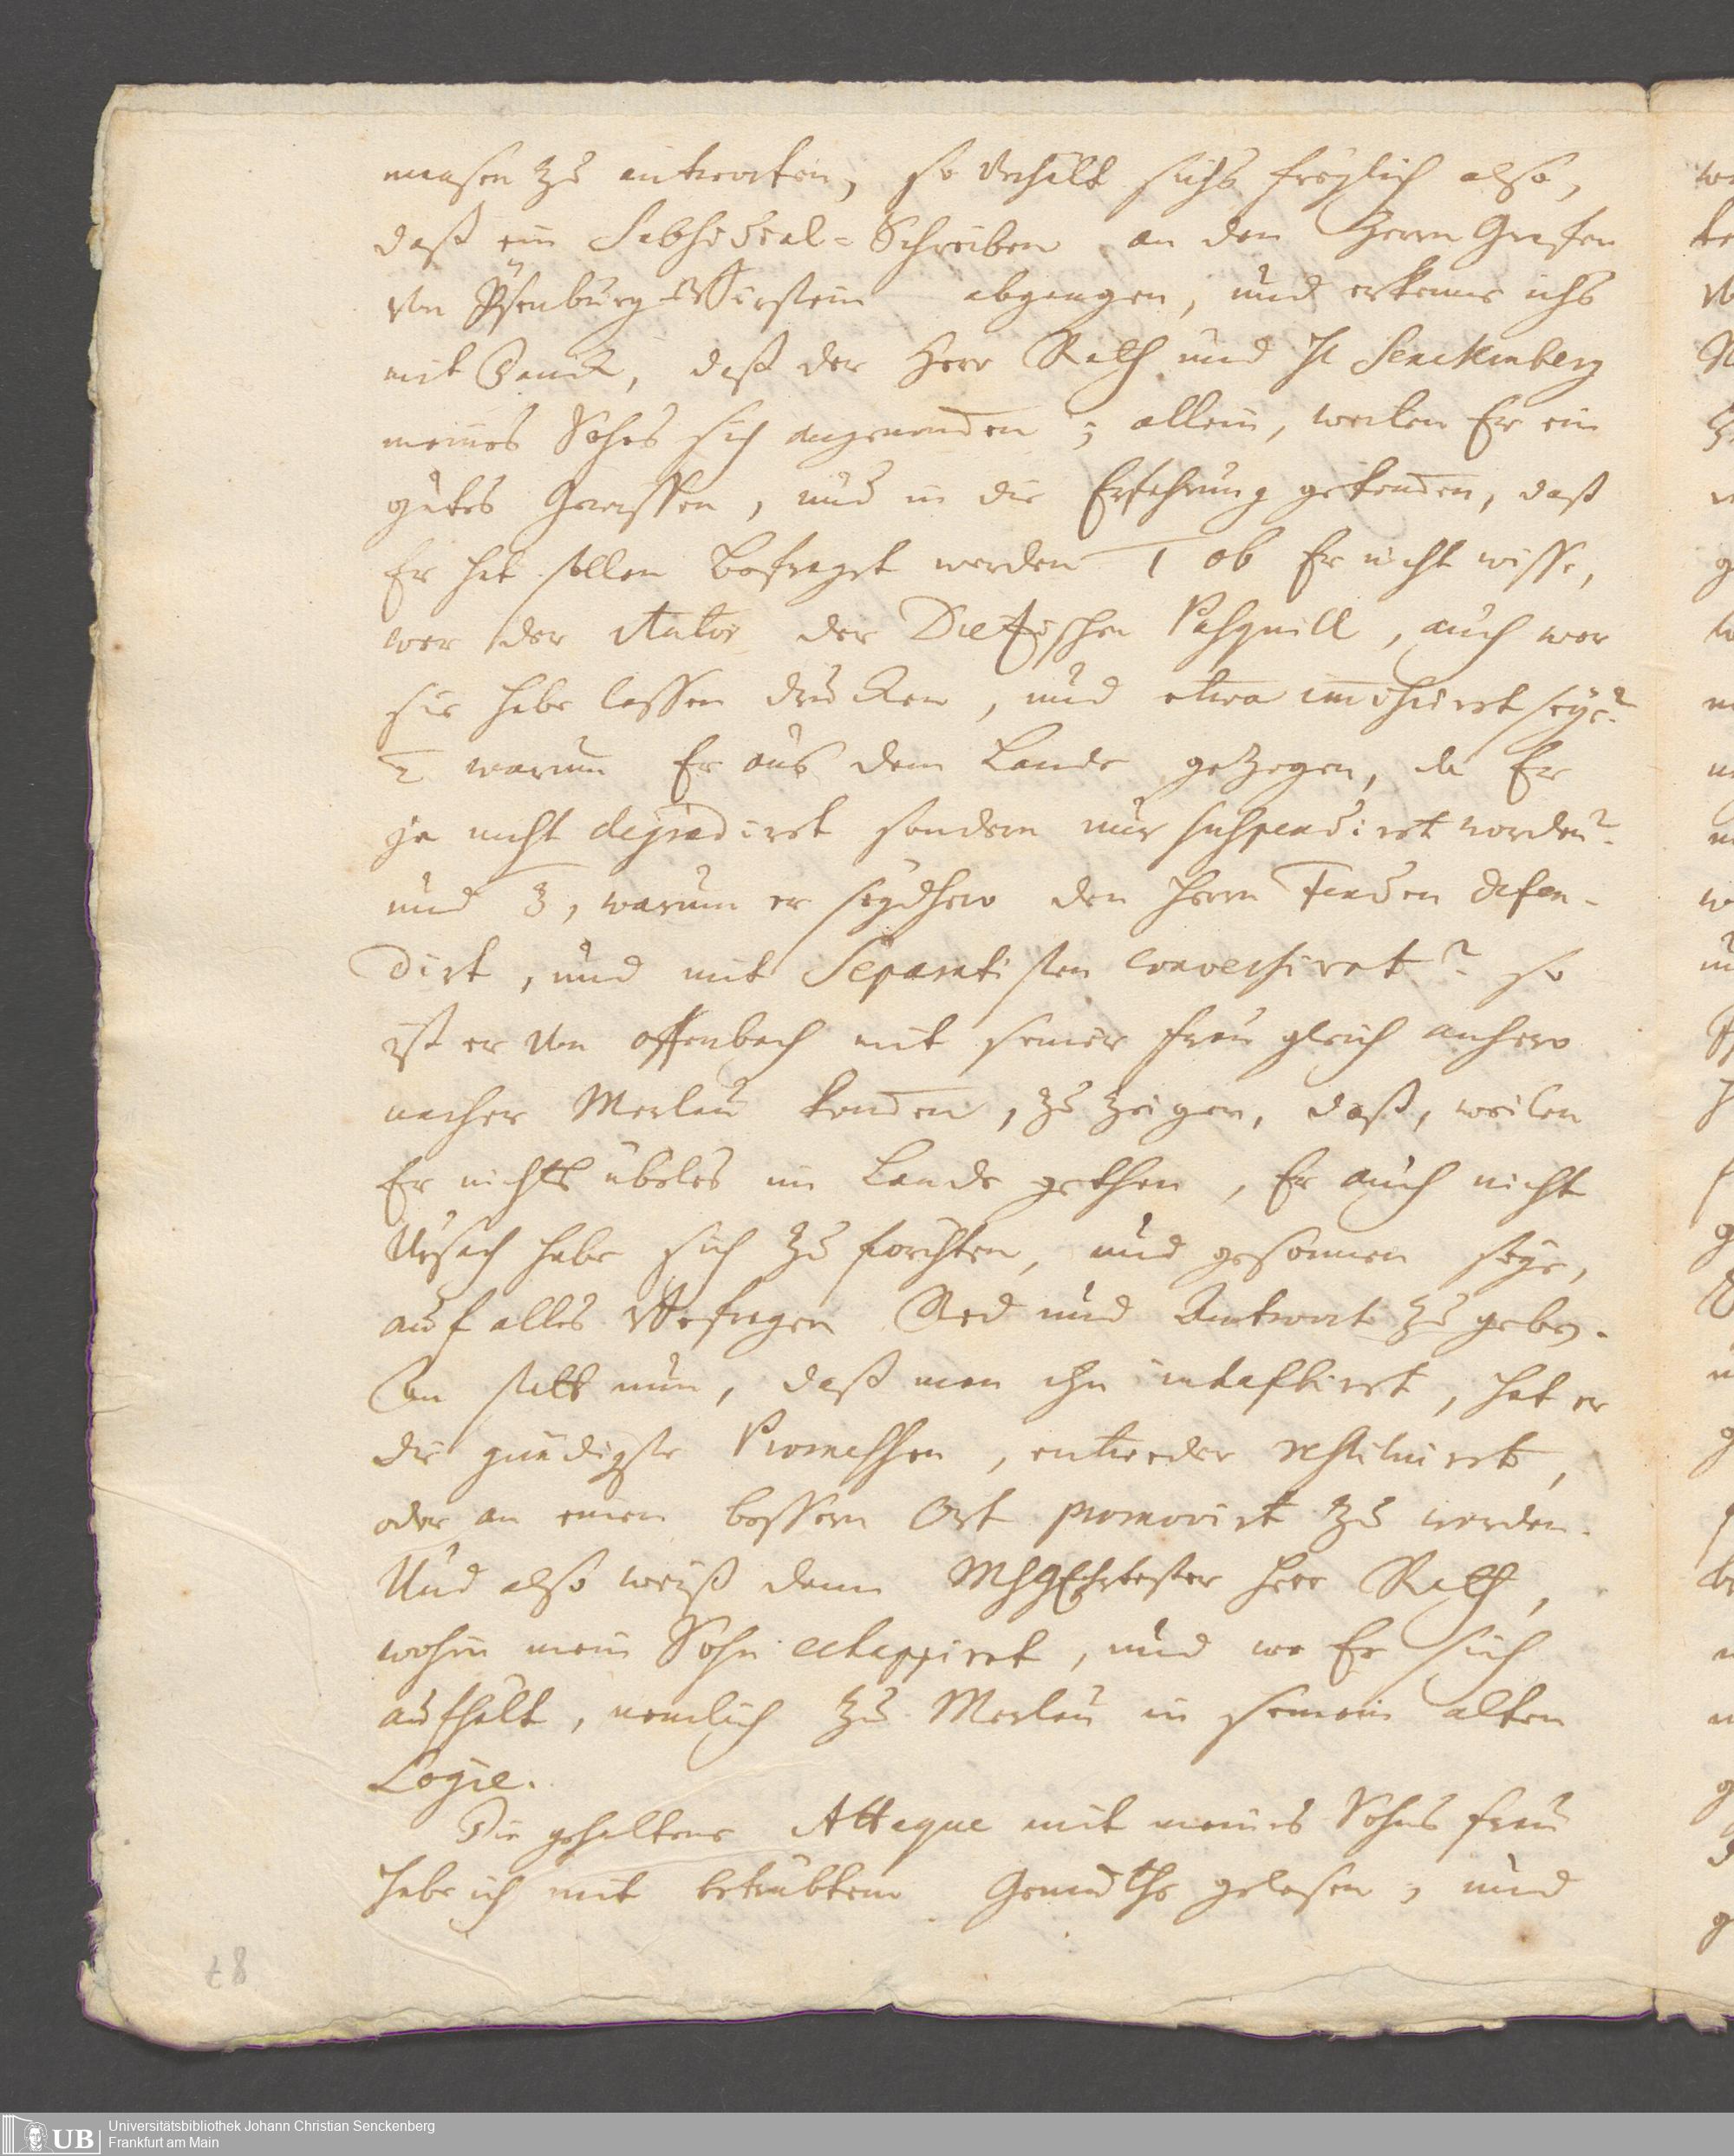 masen zu antworten, so verhält sichs freylich also,
daß ein Subsidial-Schreiben an den Herrn Grafen
von Ysenburg-Birstein abgangen, und erkenne ichs
mit Danck, daß der Herr Rath und H. Senckenberg
meines Sohns sich angenom̅en; allein, weilen Er ein
gutes Gewissen, und in die Erfahrung gekom̅en, daß
Er hat sollen befraget werden 1 ob Er nicht wisse,
wer der Autor der Dietzischen Pasquill, auch wer
sie habe lassen drucken, und etwa im̅isciret seye?
2 warum Er aus dem Lande gezogen, da Er
ja nicht degradiret sondern nur suspendiret worden?
und 3, warum er seydhero den Herrn Fenden defen-
dirt, und mit Separatisten conversiret? so
ist er von Offenbach mit seiner Frau gleich anhero
nacher Merlau kom̅en, zu zeigen, daß, weilen
Er nichts übeles im Lande gethan, Er auch nicht
Ursach habe sich zu förchten, und gesonnen seye,
auf alles Befragen Red und Antwort zu geben.
An statt nun, daß man ihn inhaftiret, hat er
die gnädigste Promessen, entweder restituiret,
oder an einen bessern Ort promovirt zu werden.
Und also weiß dann MHgEhrtester Herr Rath,
wohin mein Sohn echappiret, und wo Er sich
aufhält, nemlich zu Merlau in seinem alten
Logie.
Die gehaltene Attaque mit meines Sohns Frau
habe ich mit betrübtem Gemüthe gelesen, und
78
UB
Universitätsbibliothek Johann Christian Senckenberg
Frankfurt am Main